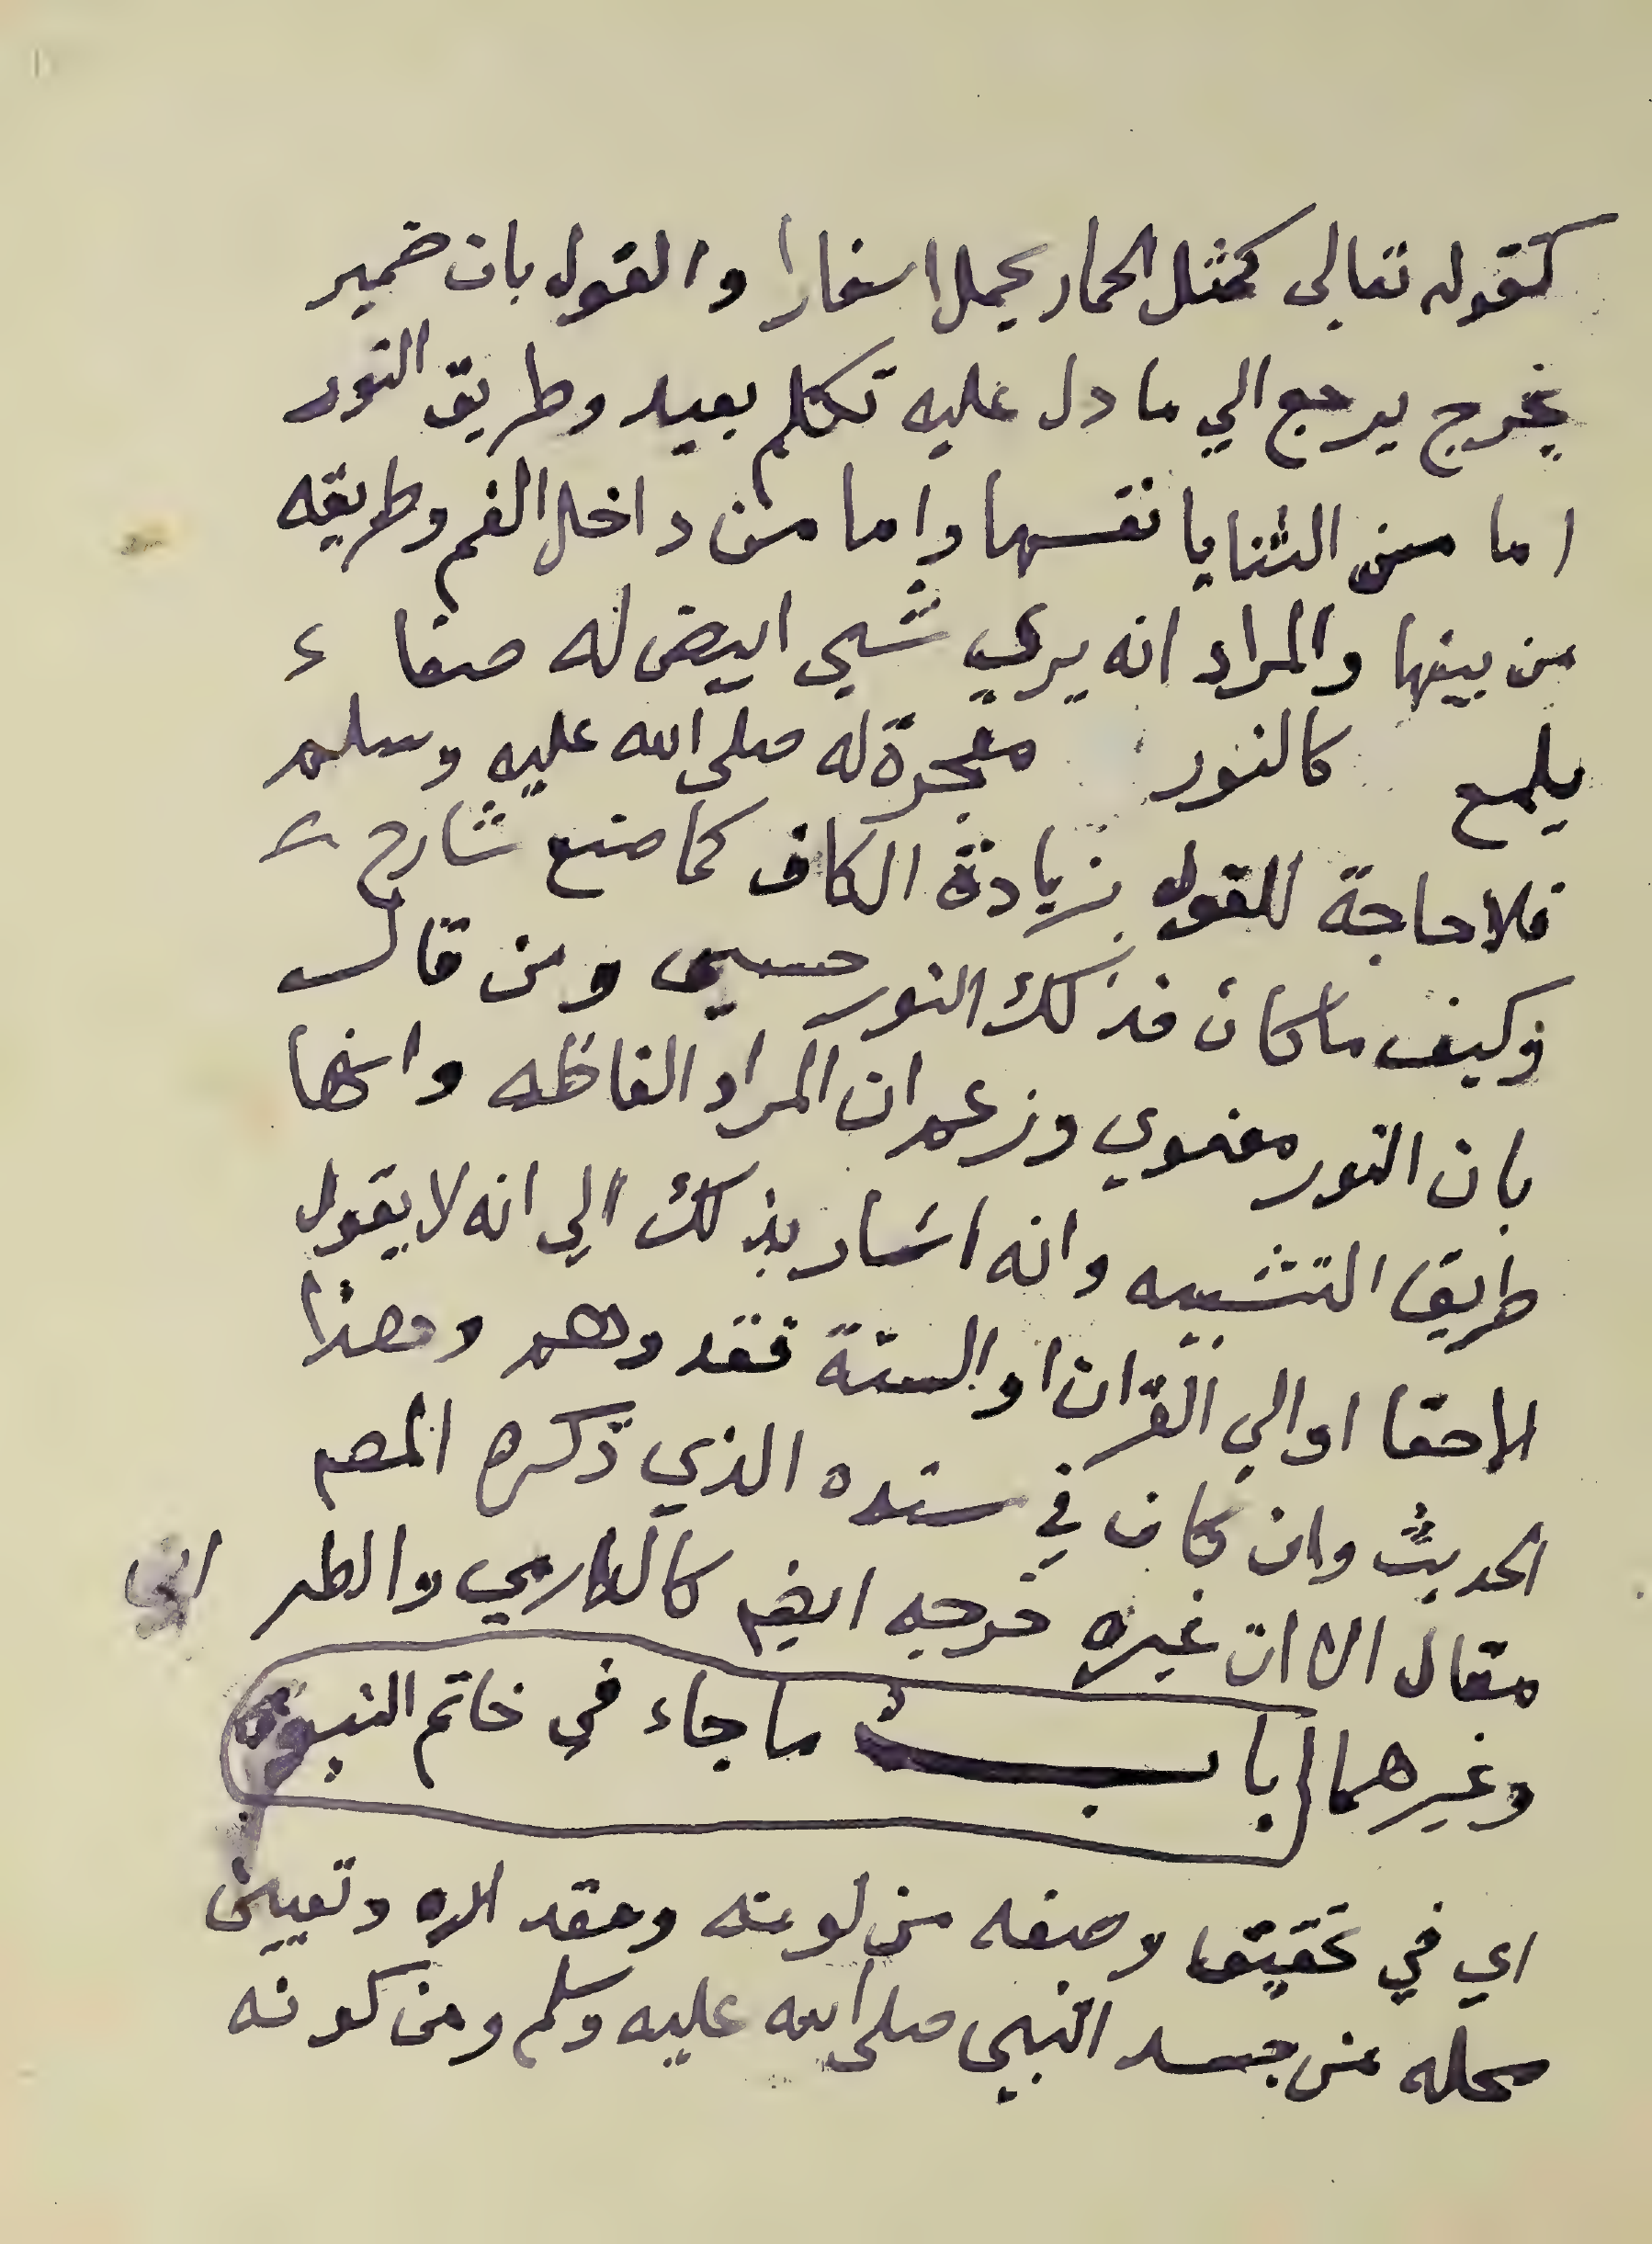 كقوله تعالى كمثل الحمار يحمل اسفارا والقول بان ضمير
يخرج يرجع الي ما دل عليه تكلم بعيد وطريق النور
اما من الثنايا نفسها واما من داخل الفم وطريقه
من بينها والمراد انه يري شيي ابيض له صفاء
يلمع كالنور معجزة له صلى الله عليه وسلم
فلا حاجة للقول بزيادة الكاف كما صنع شارح
وكيف ما كان فذلك النور حسي ومن قال
بان النور معنوي وزعم ان المراد الفاظه وانها
طريق التشبيه وانه اشار بذلك الي انه لا يقول
الاحقا اوالي القران او السنة فقد وهم وهذا
الحديث وان كان في سنده الذي ذكره المصم
مقال الا ان غيره خرجه ايضم كالدارمي والطبراني
وغيرهما باب ما جاء في خاتم النبوة
اي في تحقيق وصفه من لونه ومقداره وتعيين
محله من جسد النبي صلى الله عليه وسلم ومن كونه